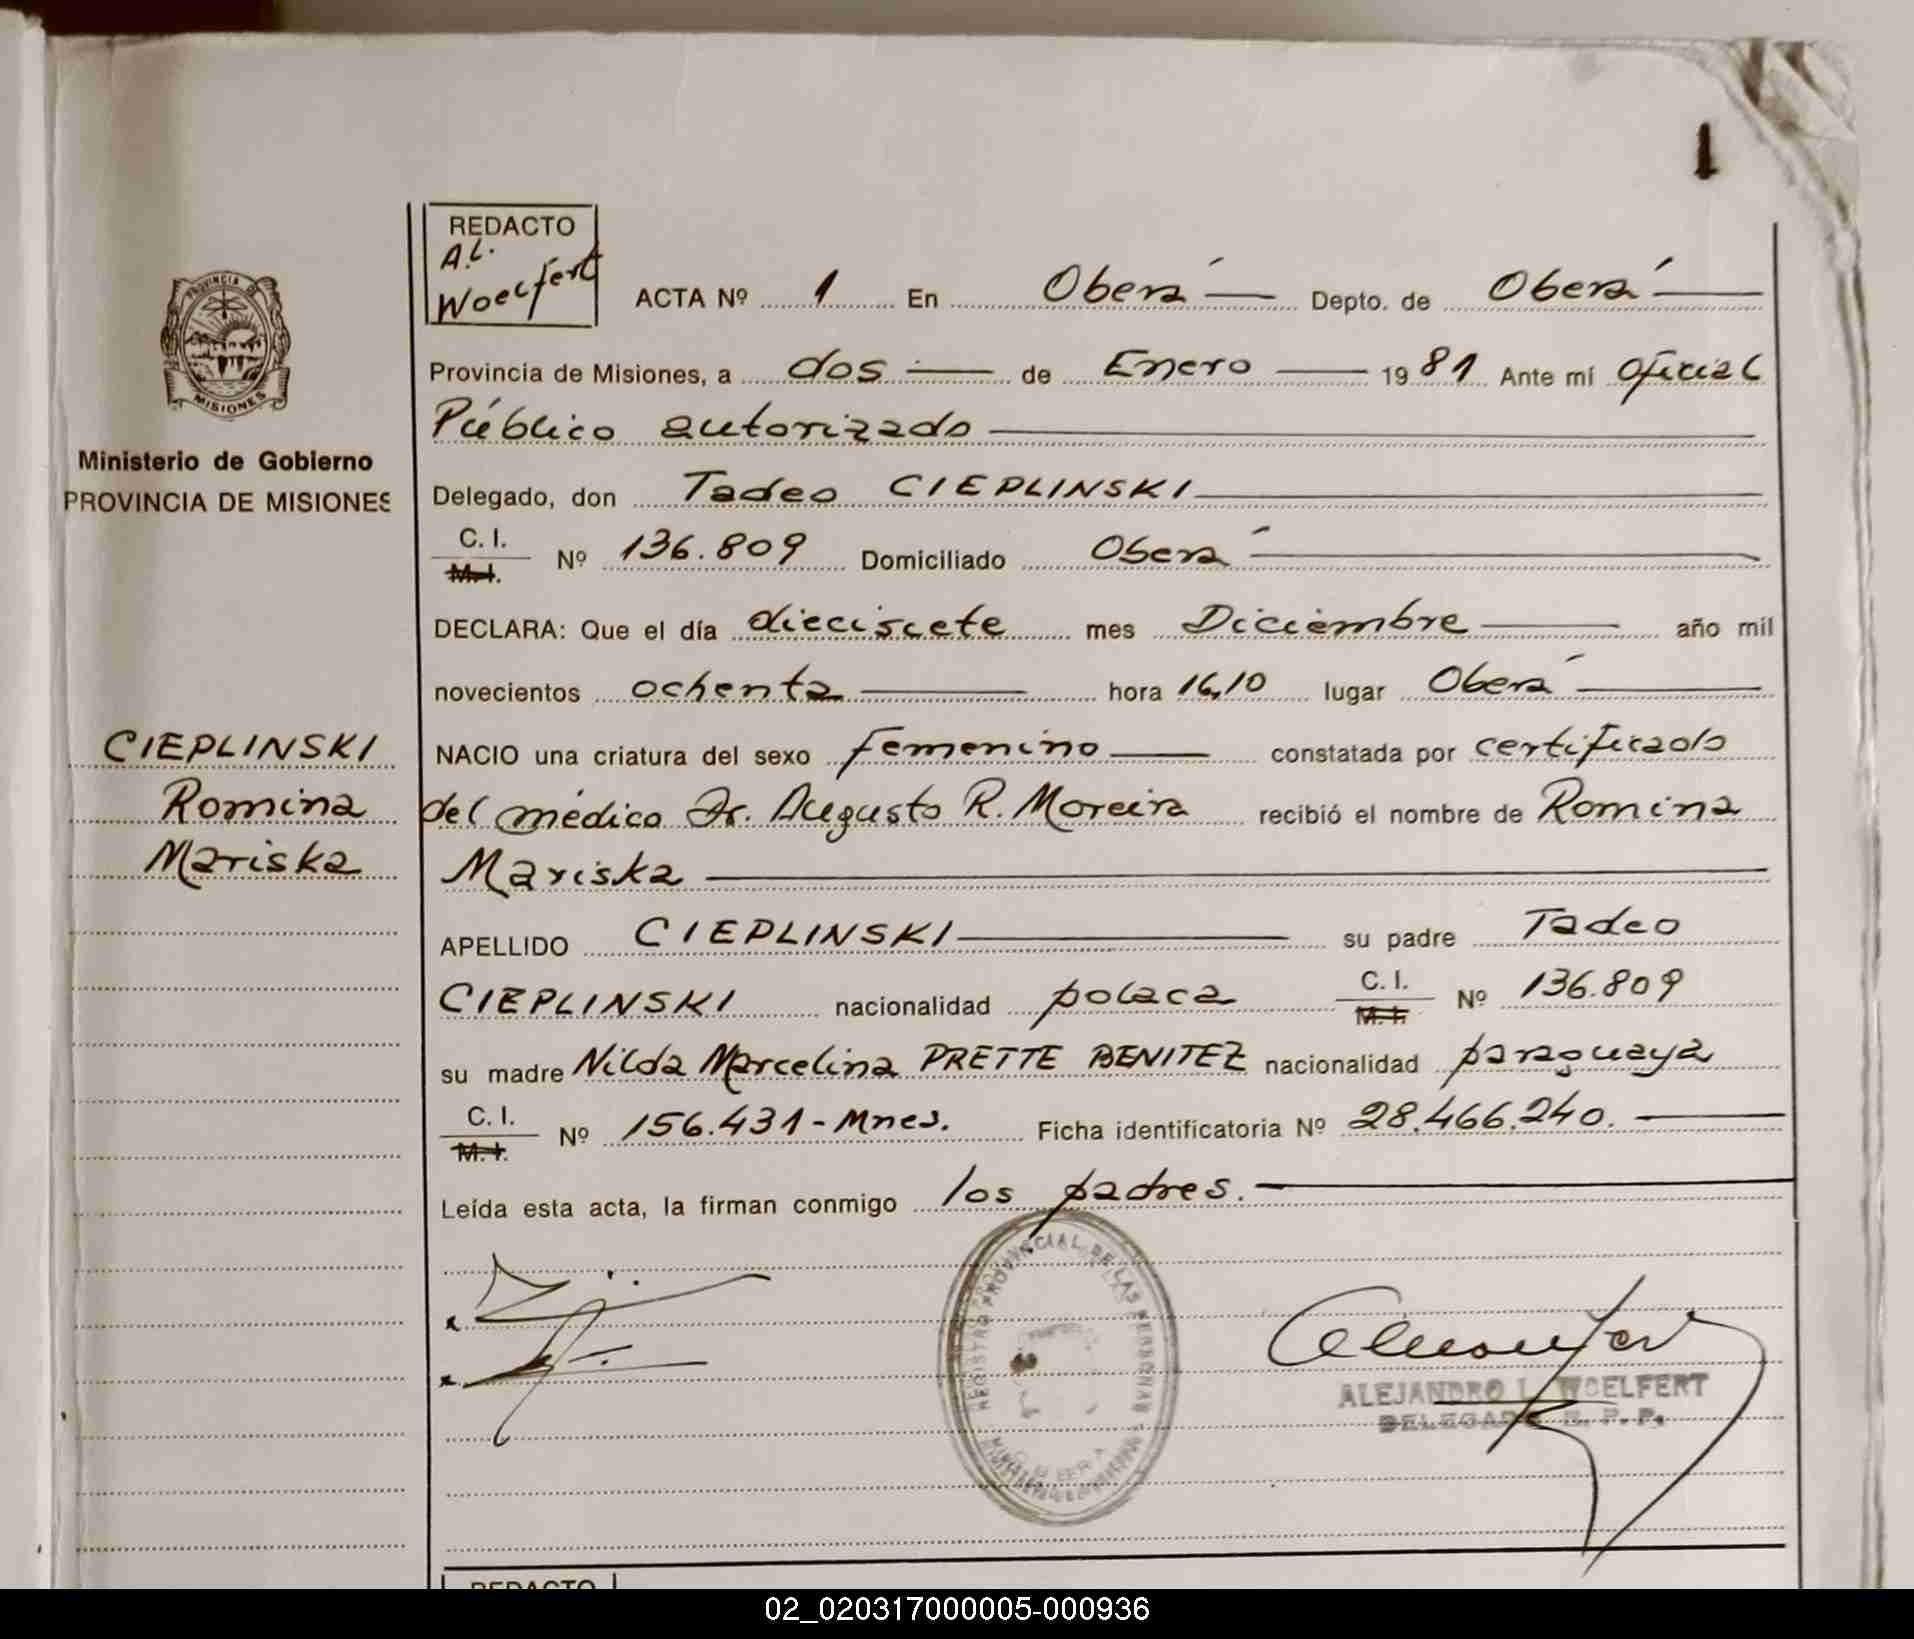 1
REDACTO
A.L.
Woelfert
ACTA Nº 1 En Oberá Depto. de Oberá
PROVINCIA DE
MISIONES
Provincia de Misiones, a dos de Enero 1981 Ante mí oficial
Público autorizado
Ministerio de Gobierno
PROVINCIA DE MISIONES
Delegado, don Tadeo CIEPLINSKI
C. I.
M. I. Nº 136.809 Domiciliado Oberá
DECLARA: Que el día diecisiete mes Diciembre año mil
novecientos ochenta hora 16,10 lugar Oberá
CIEPLINSKI
Romina
Mariska
NACIO una criatura del sexo femenino constatada por certificado
del médico Dr. Augusto R. Moreira recibió el nombre de Romina
Mariska
APELLIDO CIEPLINSKI su padre Tadeo
CIEPLINSKI nacionalidad polaca C. I. M. I. Nº 136.809
su madre Nilda Marcelina PRETTE BENITEZ nacionalidad paraguaya
C. I.
M. I. Nº 156.431-Mnes. Ficha identificatoria Nº 28.466.240.
Leída esta acta, la firman conmigo los padres.
REGISTRO PROVINCIAL DE LAS PERSONAS
ALEJANDRO L. WOELFERT
DELEGADO R. P. P.
REDACTO
02_020317000005-000936